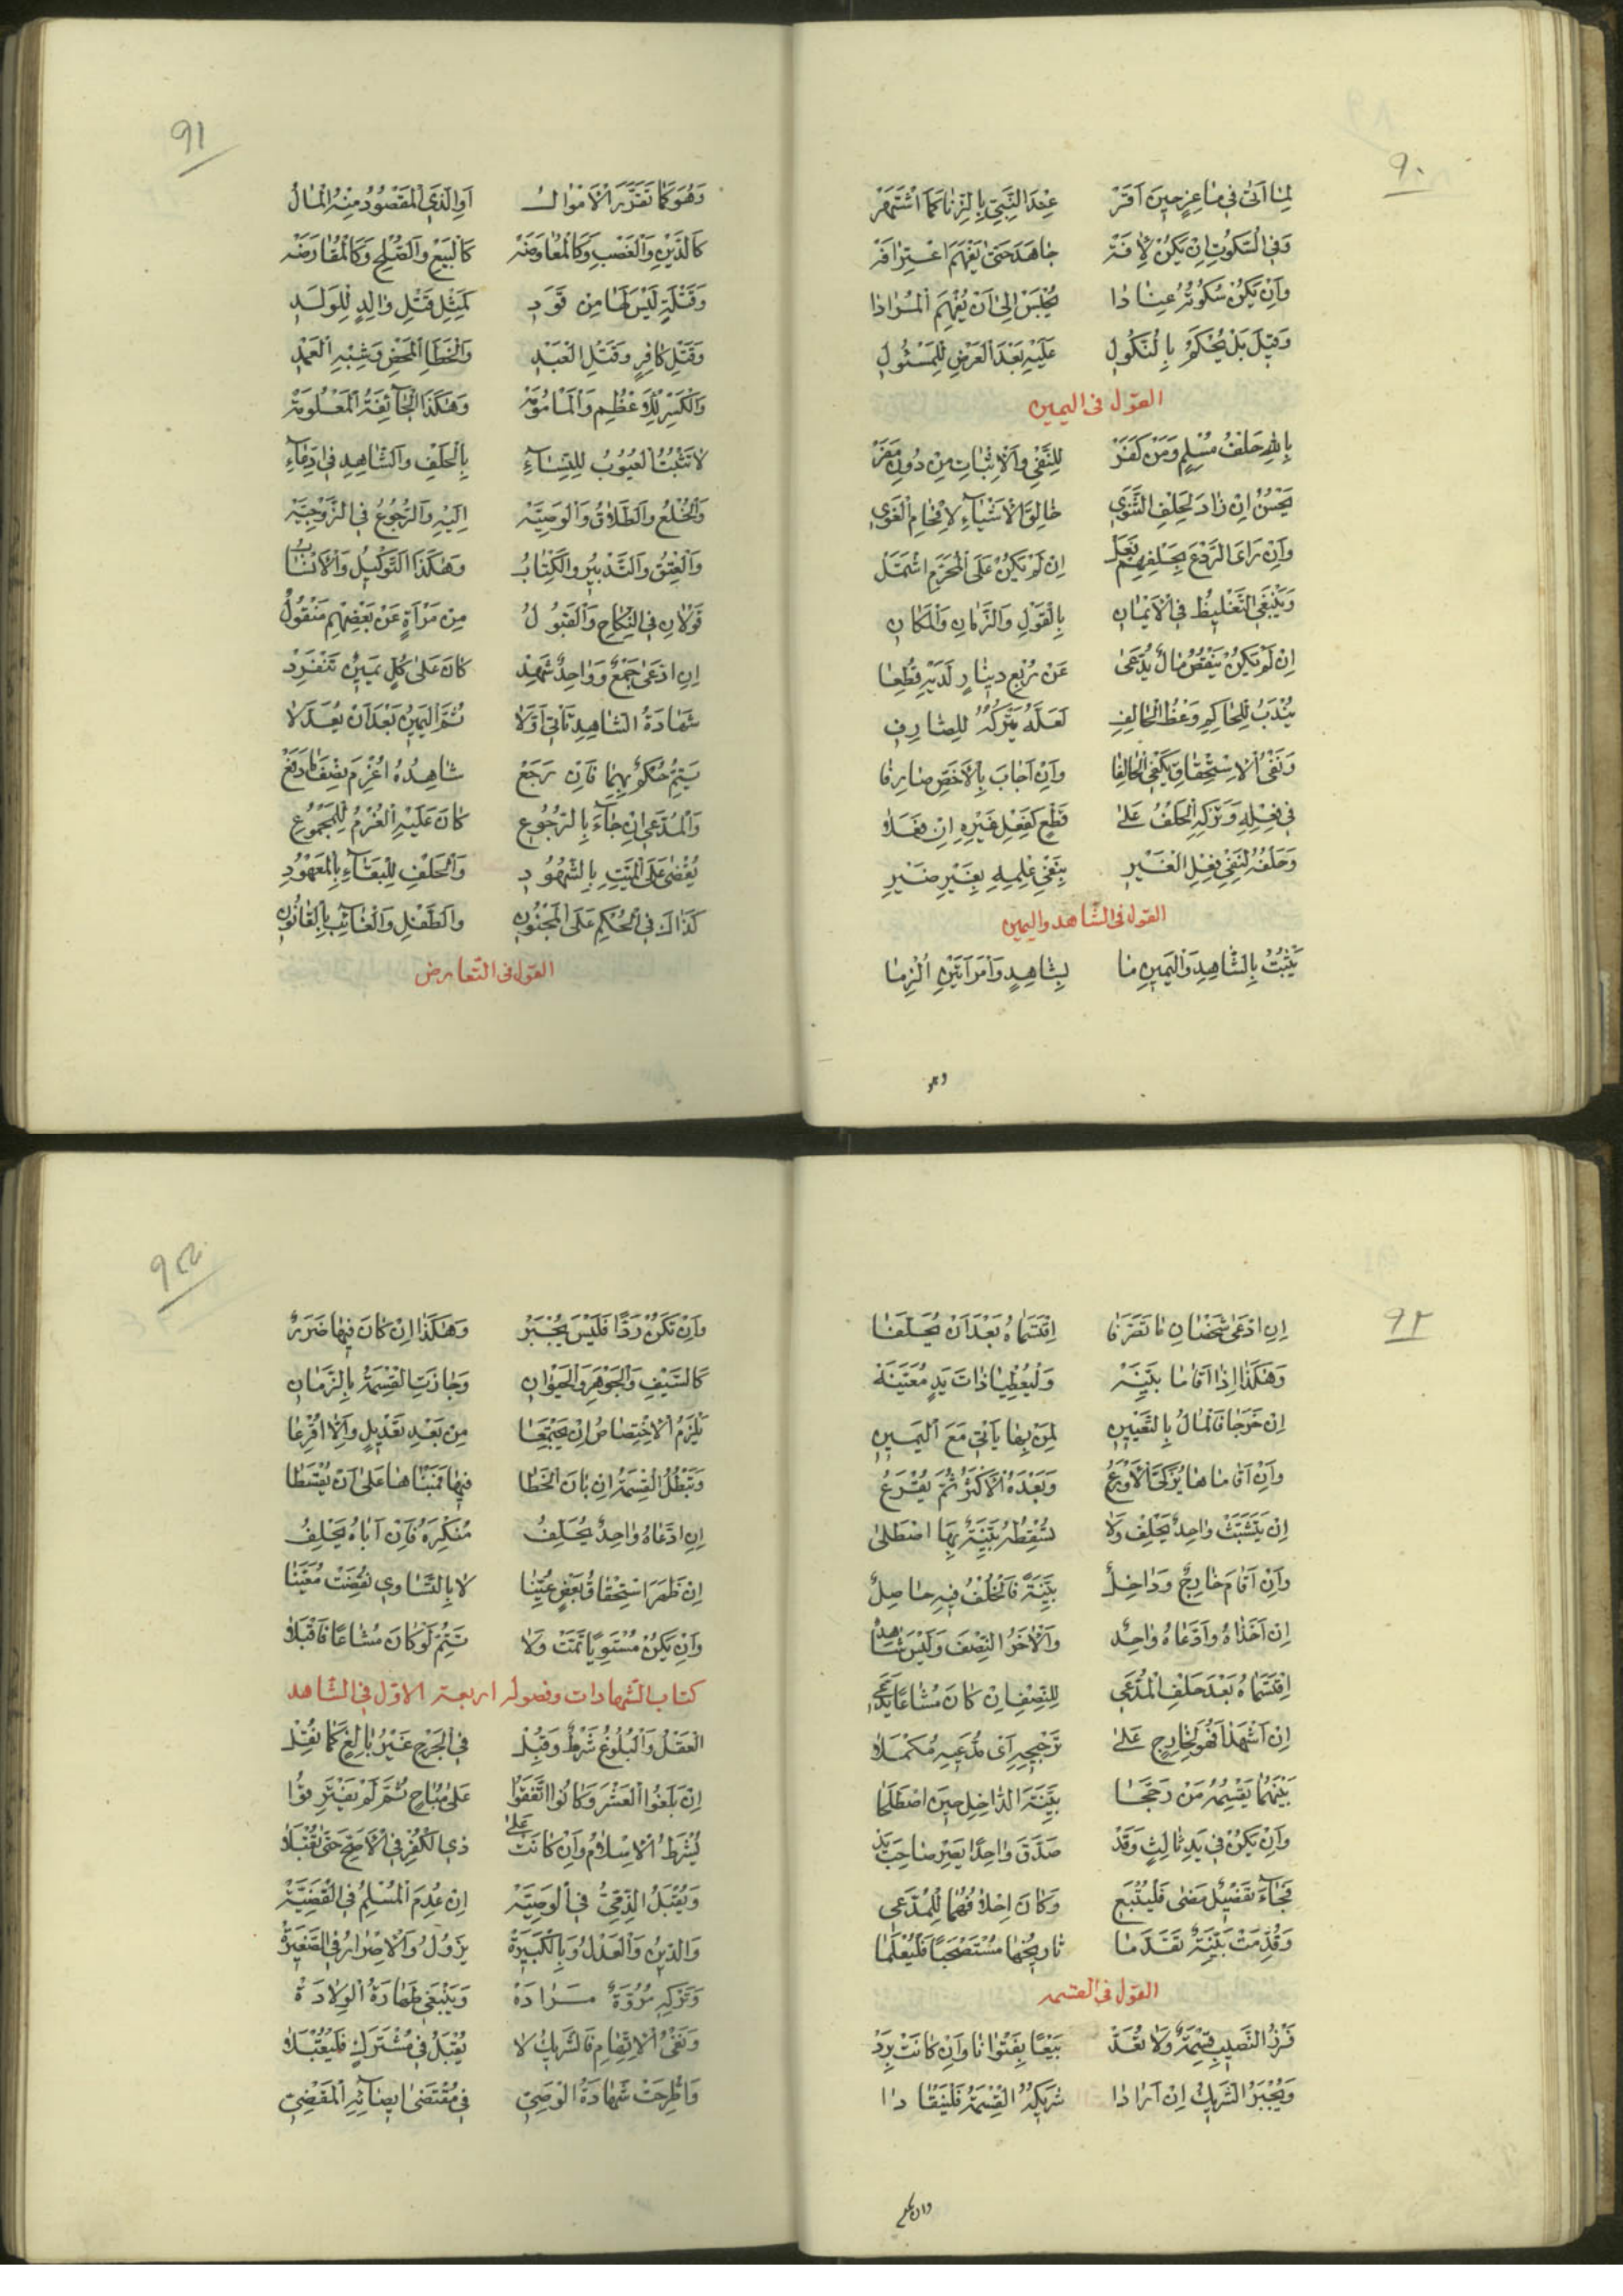 ٩٠
لِمٰا اَتىٰ فى مٰاعِزٍ حينَ اَقَرْ عِنْدَ النَّبِىِّ بِالزِّنٰا كَمَا اشْتَهَرْ
وَفِى السُّكُوتِ اِنْ يَكُنْ لِاٰفَةْ جٰاهَدَ حَتّىٰ يَفْهَمَ اعْتِرٰافَهْ
وَاِنْ يَكُنْ سُكُوتُهُ عِنٰادٰا يُحْبَسْ اِلىٰ اَنْ يُفْهِمَ الْمُرٰادٰا
وَقيلَ بَلْ يُحْكَمُ بِالنُّكُولِ عَلَيْهِ بَعْدَ الْعَرْضِ لِلْمَسْئُولِ
القول فى اليمين
بِاللهِ حَلْفُ مُسْلِمٍ وَمَنْ كَفَرْ لِلنَّفْىِ وَالْاِثْبٰاتِ مِنْ دُونِ مَفَرْ
يَحْسُنُ اِنْ زٰادَ لِحَلْفِ الثَّنَوى خٰالِقَ الْاَشْيٰاءِ لِاِفْحٰامِ الْغَوى
وَاِنْ رَاىَ الرَّدْعَ بِحَلْفِهِمْ فَعَلْ اِنْ لَمْ يَكُنْ عَلَى الْمُحَرَّمِ اشْتَمَلْ
وَيَنْبَغِى التَّغْليظُ فِى الْاَيْمٰانِ بِالْقَوْلِ وَالزَّمٰانِ وَالْمَكٰانِ
اِنْ لَمْ يَكُنْ يَنْقُصُ مٰالٌ يُدَّعىٰ عَنْ رُبْعِ دينٰارٍ لَدَيْهِ قُطِعٰا
يُنْدَبُ لِلْحٰاكِمِ وَعْظُ الْحٰالِفِ لَعَلَّهُ يَتْرُكُهُ لِلصّٰارِفِ
وَنَفْىُ الْاِسْتِحْقٰاقِ يَكْفِى الْحٰالِفٰا وَاِنْ اَجٰابَ بِالْاَخَصِّ صٰارِفٰا
فى فِعْلِهِ وَتَرْكِهِ الْحَلْفُ عَلىٰ قَطْعٍ كَفِعْلِ غَيْرِهِ اِنْ فَعَلاٰ
وَحَلْفُهُ لِنَفْىِ فِعْلِ الْغَيْرِ بِنَفْىِ عِلْمِهِ بِغَيْرِ ضَيْرِ
القول فى الشّاهد واليمين
يَثْبُتُ بِالشّٰاهِدِ وَالْيَمينِ مٰا بِشٰاهِدٍ وَامْرَاَتَيْنِ اُلْزِمٰا
وهو
٩١
وَهُوَ كَمٰا تَقَرَّرَ الْاَمْوٰالُ اَوِ الَّذِى الْمَقْصُودُ مِنْهُ الْمٰالُ
كَالدَّيْنِ وَالْغَصْبِ وَكَالْمُعٰاوَضَهْ كَالْبَيْعِ وَالصُّلْحِ وَكَالْمُقٰارَضَهْ
وَقَتْلَةٍ لَيْسَ لَهٰا مِنْ قَوَدِ كَمِثْلِ قَتْلِ وٰالِدٍ لِلْوَلَدِ
وَقَتْلِ كٰافِرٍ وَقَتْلِ الْعَبْدِ وَالْخَطَأِ الْمَحْضِ وَشِبْهِ الْعَمْدِ
وَالْكَسْرِ لِلْعَظْمِ وَالْمَامُومَهْ وَهٰكَذَا الْجٰائِفَةُ الْمَعْلُومَهْ
لاٰ تَثْبُتُ الْعُيُوبُ لِلنِّسٰاءِ بِالْحَلْفِ وَالشّٰاهِدِ فِى ادِّعٰاءِ
وَالْخُلْعُ وَالطَّلاٰقُ وَالْوَصِيَّهْ اِلَيْهِ وَالرُّجُوعُ فِى الزَّوْجِيَّهْ
وَالْعِتْقُ وَالتَّدْبيرُ وَالْكِتٰابُ وَهٰكَذَا التَّوْكيلُ وَالْاَنْسٰابُ
قَوْلاٰنِ فِى النِّكٰاحِ وَالْقَبُولُ مِنْ مَرْأَةٍ عَنْ بَعْضِهِمْ مَنْقُولُ
اِنِ ادَّعىٰ جَمْعٌ وَوٰاحِدٌ شَهِدْ كٰانَ عَلىٰ كُلٍّ يَمينٌ تَنْفَرِدْ
شَهٰادَةُ الشّٰاهِدِ تَأْتى اَوَّلاٰ ثُمَّ الْيَمينُ بَعْدَ اَنْ يُعَدَّلاٰ
يَتِمُّ حُكْمٌ بِهِمٰا فَاِنْ رَجَعْ شٰاهِدُهُ اُغْرِمَ نِصْفَ مٰا دَفَعْ
وَالْمُدَّعى اِنْ جٰاءَ بِالرُّجُوعِ كٰانَ عَلَيْهِ الْغُرْمُ لِلْمَجْمُوعِ
يُقْضىٰ عَلَى الْمَيِّتِ بِالشُّهُودِ وَالْحَلْفِ لِلْبَقٰاءِ بِالْمَعْهُودِ
كَذٰاكَ فِى الْحُكْمِ عَلَى الْمَجْنُونِ وَالطِّفْلِ وَالْغٰائِبِ بِالْقٰانُونِ
القول فى التّعارض
٩٢
اِنِ ادَّعىٰ شَخْصٰانِ مٰا تَصَرَّفٰا اِقْتَسَمٰاهُ بَعْدَ اَنْ يُحَلَّفٰا
وَهٰكَذٰا اِذٰا اَقٰامٰا بَيِّنَهْ وَلْيُعْطِيٰا ذٰاتَ يَدٍ مُعَيَّنَهْ
اِنْ خَرَجٰا فَالْمٰالُ بِالتَّعْيينِ لِمَنْ بِهٰا يَأْتى مَعَ الْيَمينِ
وَاِنْ اَقٰامٰاهٰا يُزَكَّى الْاَوْرَعُ وَبَعْدَهُ الْاَكْثَرُ ثُمَّ يُقْرَعُ
اِنْ يَتَشَبَّثْ وٰاحِدٌ يَحْلِفْ وَلاٰ تُسْقِطُهُ بَيِّنَةٌ بِهَا اصْطَلىٰ
وَاِنْ اَقٰامَ خٰارِجٌ وَدٰاخِلٌ بَيِّنَةً فَالْخُلْفُ فيهِ حٰاصِلٌ
اِنْ اَخَذٰاهُ وَادَّعٰاهُ وٰاحِدٌ وَالْاٰخَرُ النِّصْفَ وَلَيْسَ شٰاهِدٌ
اِقْتَسَمٰاهُ بَعْدَ حَلْفِ الْمُدَّعى لِلنِّصْفِ اِنْ كٰانَ مُشٰاعًا يَدَّعى
اِنْ اَشْهَدٰا فَهُوَ لِخٰارِجٍ عَلىٰ تَرْجيحِهِ اَىْ مُدَّعيهِ مُكَمَّلاٰ
بَيْنَهُمٰا يَقْسِمُهُ مَنْ رَجَّحٰا بَيِّنَةَ الدّٰاخِلِ حينَ اصْطَلَحٰا
وَاِنْ يَكُنْ فى يَدِ ثٰالِثٍ وَقَدْ صَدَّقَ وٰاحِدًا يَصِرْ صٰاحِبَ يَدْ
فَجٰاءَ تَفْصيلٌ مَضىٰ فَلْيُتْبَعِ وَكٰانَ اِحْلاٰفُهُمٰا لِلْمُدَّعى
وَقُدِّمَتْ بَيِّنَةٌ تَقَدَّمٰا تٰاريخُهٰا مُسْتَصْحَبًا فَلْيُعْلَمٰا
القول فى القسمه
فَرْزُ النَّصيبِ قِسْمَةٌ وَلاٰ تُعَدّْ بَيْعًا بِفَتْوٰانٰا وَاِنْ كٰانَتْ بِرَدّْ
وَيُجْبَرُ الشَّريكُ اِنْ اَرٰادٰا شَريكُهُ الْقِسْمَةَ فَلْيَنْقٰادٰا
وان تكن
وَاِنْ تَكُنْ رَدًّا فَلَيْسَ يُجْبَرُ وَهٰكَذٰا اِنْ كٰانَ فيهٰا ضَرَرٌ
كَالسَّيْفِ وَالْجَوْهَرِ وَالْحَيْوٰانِ وَجٰازَتِ الْقِسْمَةُ بِالزَّمٰانِ
يَلْزَمُ الْاِخْتِصٰاصُ اِنْ يَجْتَمِعٰا مِنْ بَعْدِ تَعْديلٍ وَاِلّٰا اُقْرِعٰا
وَتَبْطُلُ الْقِسْمَةُ اِنْ بٰانَ الْخَطٰا فيهٰا فَمَبْنٰاهٰا عَلىٰ اَنْ يُقْسَطٰا
اِنِ ادَّعٰاهُ وٰاحِدٌ يُحَلِّفُ مُنْكِرَهُ فَاِنْ اَبٰاهُ يَحْلِفُ
اِنْ ظَهَرَ اسْتِحْقٰاقُ بَعْضٍ عُيِّنٰا لاٰ بِالتَّسٰاوى نُقِضَتْ مُعَيَّنٰا
وَاِنْ يَكُنْ مُسْتَوِيًا تَمَّتْ وَلاٰ تَتِمُّ لَوْ كٰانَ مُشٰاعًا فَاقْبَلاٰ
كتاب الشّهادات وفصوله اربعة الاوّل فى الشّاهد
الْعَقْلُ وَالْبُلُوغُ شَرْطٌ وَقُبِلْ فِى الْجَرْحِ غَيْرُ بٰالِغٍ كَمٰا نُقِلْ
اِنْ بَلَغُوا الْعَشْرَ وَكٰانُوا اتَّفَقُوا عَلىٰ مُبٰاحٍ ثُمَّ لَمْ يَفْتَرِقُوا
يُشْرَطُ الْاِسْلاٰمُ وَاِنْ كٰانَتْ عَلىٰ ذِى الْكُفْرِ فِى الْاَصَحِّ حَتّىٰ تُقْبَلاٰ
وَيُقْبَلُ الذِّمِّىُّ فِى الْوَصِيَّهْ اِنْ عُدِمَ الْمُسْلِمُ فِى الْقَضِيَّهْ
وَالدّينُ وَالْعَدْلُ وَبِالْكَبيرَةْ يَزُولُ وَالْاِصْرٰارُ فِى الصَّغيرَةْ
وَتَرْكِهِ مُرُوَّةً مُرٰادَةْ وَيَنْبَغى طَهٰارَةُ الْوِلاٰدَةْ
وَنَفْىُ الْاِتِّهٰامِ فَالشَّريكُ لاٰ يُقْبَلُ فى مُشْتَرَكٍ فَلْيُقْبَلاٰ
وَاطُّرِحَتْ شَهٰادَةُ الْوَصِىِّ فى مُقْتَضىٰ ايصٰائِهِ الْمَقْضِىِّ